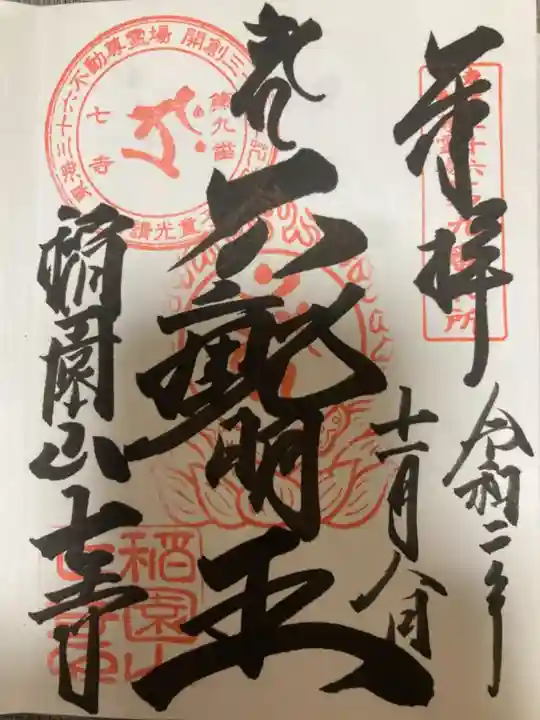 奉拝
令和二年
十一月八日
不動明王
稲園山 七寺
三十六不動尊霊場 開創三
第九番
七寺
稲園山